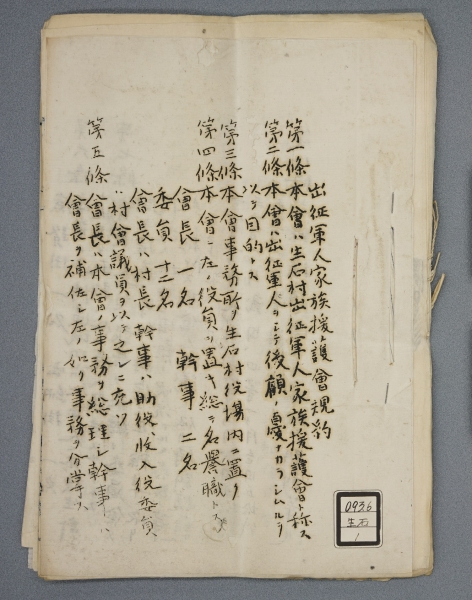 出征軍人家族援護會規約
第一條 本會ハ生石村出征軍人家族援護會ト称ス
第二條 本會ハ出征軍人ヲシテ後顧ノ憂ナカラシムルヲ
以テ目的トス
第三條 本會事務所ヲ生石村役場内ニ置ク
第四條 本會ニ左ノ役員ヲ置キ総テ名譽職トス
會長 一名 幹事 二名
委員 十二名
會長ハ村長 幹事ハ助役、收入役委員
ハ村會議員ヲ以テ之レニ充ツ
第五條 會長ハ本會ノ事務ヲ総理シ幹事ハ
會長ヲ補佐シ左ノ如ク事務ヲ分掌ス
0936
生石
1